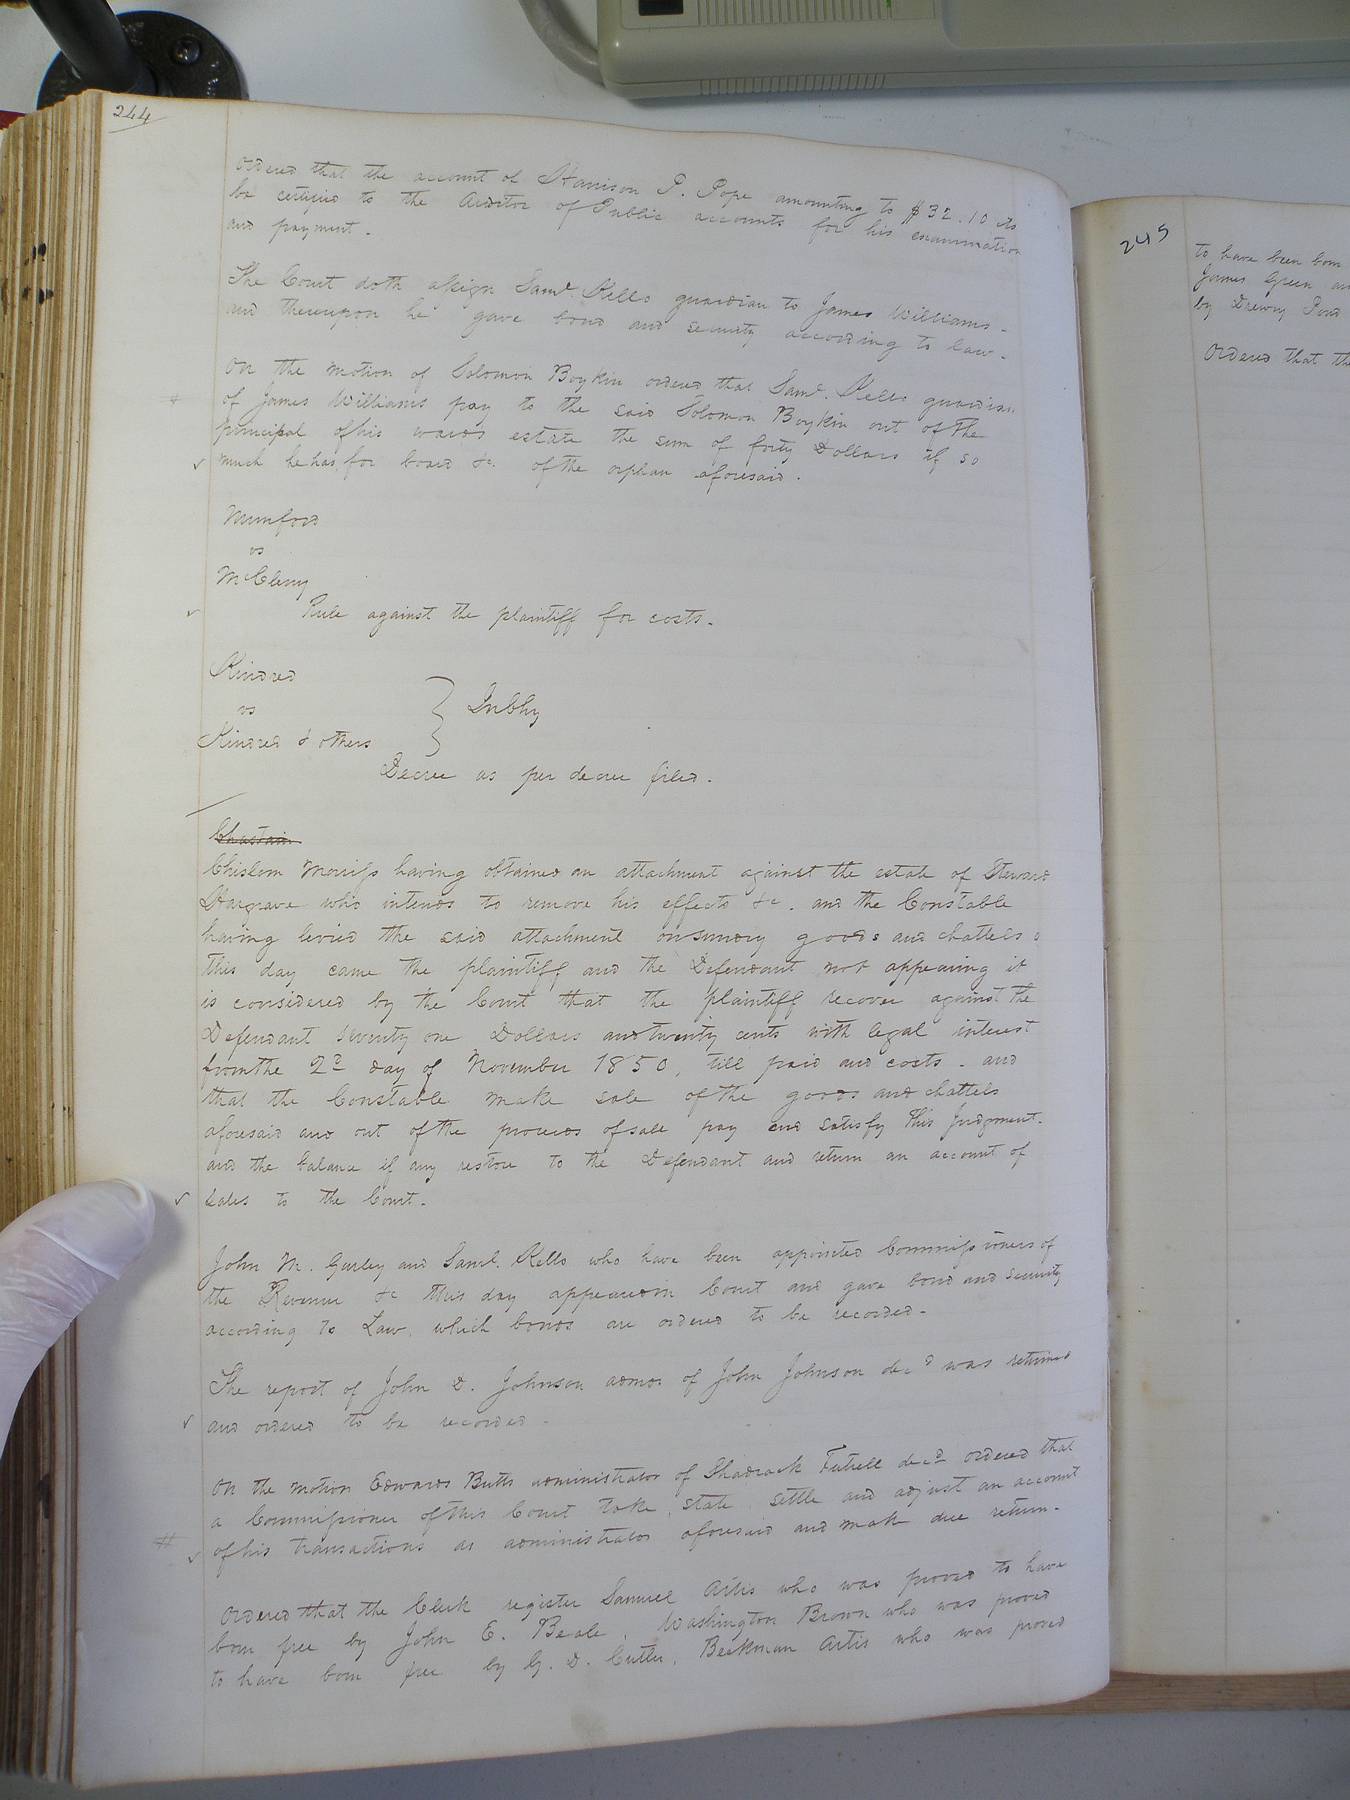 244
Ordered that the account of Harrison P. Pope amounting to $32.10 cts
be certified to the Auditor of Public accounts for his examination
and payment.
The Court doth assign Saml. Kello guardian to James Williams.
and thereupon he gave bond and security according to law.
On the motion of Solomon Boykin ordered that Saml. Kello guardian
#
of James Williams pay to the said Solomon Boykin out of the
principal of his wards estate the sum of forty Dollars if so
✓ much he has, for board &c. of the orphan aforesaid.
Mumford
vs
McCleny
✓ Rule against the plaintiff for costs.
Kindred
vs } In Chy
Kindred & others
Decree as per decree filed.
Chastain
Chislom Morriss having obtained an attachment against the estate of Steward
Hargrave who intends to remove his effects &c. and the Constable
having levied the said attachment on sundry goods and chattels
this day came the plaintiff and the Defendant not appearing it
is considered by the Court that the plaintiff recover against the
Defendant seventy one Dollars and twenty cents with legal interest
from the 2d day of November 1850, till paid and costs. and
that the Constable make sale of the goods and chattels
aforesaid and out of the proceeds of sale pay and satisfy this Judgment.
and the balance if any restore to the Defendant and return an account of
✓ sales to the Court.
John M. Gurley and Saml. Kello who have been appointed Commissioners of
the Revenue &c this day appeared in Court and gave bond and security
according to Law, which bonds are ordered to be recorded.
The report of John D. Johnson admor of John Johnson decd was returned
✓ and ordered to be recorded.
On the motion Edwards Butts administrator of Shadrack Futrell decd ordered that
a Commissioner of this Court take, state, settle and adjust an account
# ✓ of his transactions as administrator aforesaid and make due return.
Ordered that the Clerk register Samuel Artis who was proved to have
born free by John E. Beale, Washington Brown who was proved
to have born free by G. D. Cutler, Beekman Artis who was proved
245
to have been born
James Green an
by Drewry Pond
Ordered that the